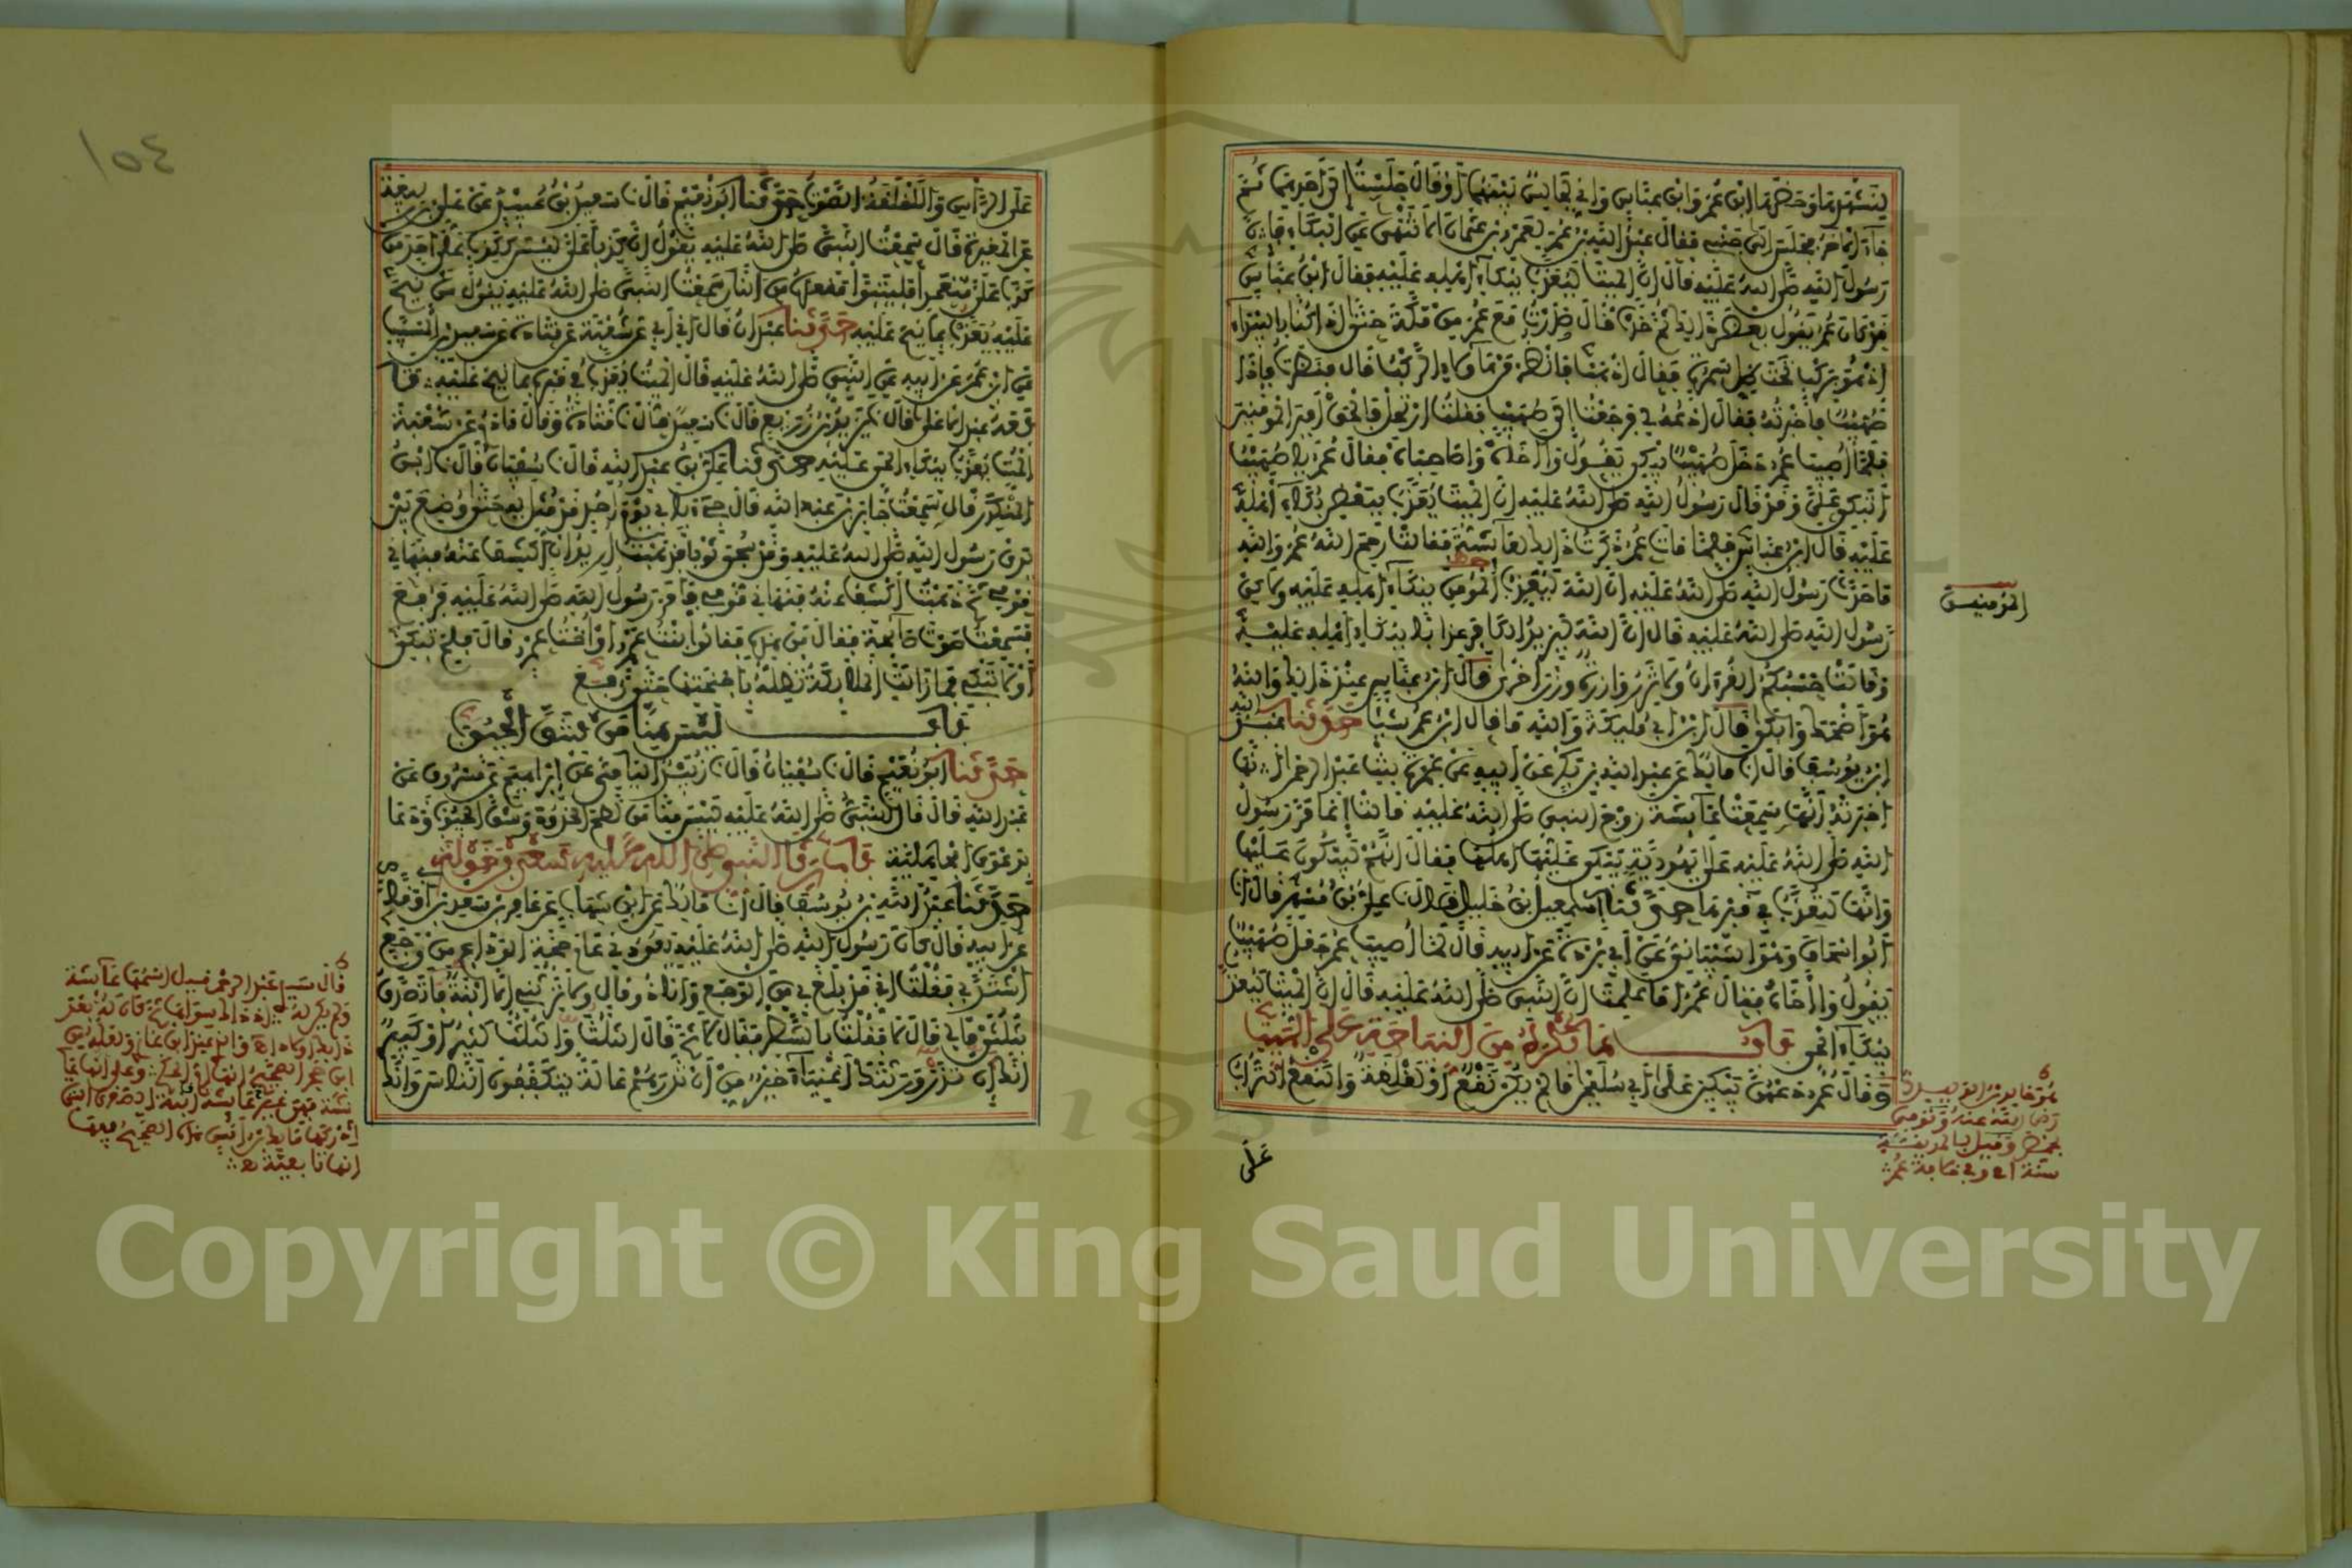 لِنَشْهَدَهَا وَحَضَرَهَا ابْنُ عُمَرَ وَابْنُ عَبَّاسٍ وَإِنِّي لَجَالِسٌ بَيْنَهُمَا أَوْ قَالَ جَلَسْتُ إِلَى أَحَدِهِمَا ثُمَّ
جَاءَ الْآخَرُ فَجَلَسَ إِلَى جَنْبِي فَقَالَ عَبْدُ اللهِ بْنُ عُمَرَ لِعَمْرِو بْنِ عُثْمَانَ أَلَا تَنْهَى عَنِ الْبُكَاءِ فَإِنَّ
رَسُولَ اللهِ صَلَّى اللهُ عَلَيْهِ قَالَ إِنَّ الْمَيِّتَ لَيُعَذَّبُ بِبُكَاءِ أَهْلِهِ عَلَيْهِ فَقَالَ ابْنُ عَبَّاسٍ
قَدْ كَانَ عُمَرُ يَقُولُ بَعْضَ ذَلِكَ ثُمَّ حَدَّثَ قَالَ صَدَرْتُ مَعَ عُمَرَ مِنْ مَكَّةَ حَتَّى إِذَا كُنَّا بِالْبَيْدَاءِ
إِذْ هُوَ بِرَكْبٍ تَحْتَ ظِلِّ سَمُرَةٍ فَقَالَ اذْهَبْ فَانْظُرْ مَنْ هَؤُلَاءِ الرَّكْبُ قَالَ فَنَظَرْتُ فَإِذَا
صُهَيْبٌ فَأَخْبَرْتُهُ فَقَالَ ادْعُهُ لِي فَرَجَعْتُ إِلَى صُهَيْبٍ فَقُلْتُ ارْتَحِلْ فَالْحَقْ أَمِيرَ الْمُومِنِينَ
فَلَمَّا أُصِيبَ عُمَرُ دَخَلَ صُهَيْبٌ يَبْكِي يَقُولُ وَا أَخَاهْ وَا صَاحِبَاهْ فَقَالَ عُمَرُ يَا صُهَيْبُ
أَتَبْكِي عَلَيَّ وَقَدْ قَالَ رَسُولُ اللهِ صَلَّى اللهُ عَلَيْهِ إِنَّ الْمَيِّتَ يُعَذَّبُ بِبَعْضِ بُكَاءِ أَهْلِهِ
عَلَيْهِ قَالَ ابْنُ عَبَّاسٍ فَلَمَّا مَاتَ عُمَرُ ذَكَرْتُ ذَلِكَ لِعَائِشَةَ فَقَالَتْ رَحِمَ اللهُ عُمَرَ وَاللهِ
مَا حَدَّثَ رَسُولُ اللهِ صَلَّى اللهُ عَلَيْهِ إِنَّ اللهَ لَيُعَذِّبُ الْمُومِنَ بِبُكَاءِ أَهْلِهِ عَلَيْهِ وَلَكِنَّ
رَسُولَ اللهِ صَلَّى اللهُ عَلَيْهِ قَالَ إِنَّ اللهَ لَيَزِيدُ الْكَافِرَ عَذَابًا بِبُكَاءِ أَهْلِهِ عَلَيْهِ
وَقَالَتْ حَسْبُكُمُ الْقُرْآنُ وَلَا تَزِرُ وَازِرَةٌ وِزْرَ أُخْرَى قَالَ ابْنُ عَبَّاسٍ عِنْدَ ذَلِكَ وَاللهُ
هُوَ أَضْحَكَ وَأَبْكَى قَالَ ابْنُ أَبِي مُلَيْكَةَ وَاللهِ مَا قَالَ ابْنُ عُمَرَ شَيْئًا حَدَّثَنَا عَبْدُ اللهِ
ابْنُ يُوسُفَ قَالَ أَنَا مَالِكٌ عَنْ عَبْدِ اللهِ بْنِ أَبِي بَكْرٍ عَنْ أَبِيهِ عَنْ عَمْرَةَ بِنْتِ عَبْدِ الرَّحْمَنِ أَنَّهَا
أَخْبَرَتْهُ أَنَّهَا سَمِعَتْ عَائِشَةَ زَوْجَ النَّبِيِّ صَلَّى اللهُ عَلَيْهِ قَالَتْ إِنَّمَا مَرَّ رَسُولُ
اللهِ صَلَّى اللهُ عَلَيْهِ عَلَى يَهُودِيَّةٍ يَبْكِي عَلَيْهَا أَهْلُهَا فَقَالَ إِنَّهُمْ لَيَبْكُونَ عَلَيْهَا
وَإِنَّهَا لَتُعَذَّبُ فِي قَبْرِهَا حَدَّثَنَا إِسْمَعِيلُ بْنُ خَلِيلٍ قَالَ نَا عَلِيُّ بْنُ مُسْهِرٍ قَالَ نَا
أَبُو إِسْحَاقَ وَهُوَ الشَّيْبَانِيُّ عَنْ أَبِي بُرْدَةَ عَنْ أَبِيهِ قَالَ لَمَّا أُصِيبَ عُمَرُ جَعَلَ صُهَيْبٌ
يَقُولُ وَا أَخَاهْ فَقَالَ عُمَرُ أَمَا عَلِمْتَ أَنَّ النَّبِيَّ صَلَّى اللهُ عَلَيْهِ قَالَ إِنَّ الْمَيِّتَ لَيُعَذَّبُ
بِبُكَاءِ الْحَيِّ بَابُ مَا يُكْرَهُ مِنَ النِّيَاحَةِ عَلَى الْمَيِّتِ
وَقَالَ عُمَرُ دَعْهُنَّ يَبْكِينَ عَلَى أَبِي سُلَيْمَانَ مَا لَمْ يَكُنْ نَقْعٌ أَوْ لَقْلَقَةٌ وَالنَّقْعُ التُّرَابُ
عَلَى
المُومنين
هو خالد بن الوليد
رضي الله عنه وتوفي
بحمص وقيل بالمدينة
سنة ٢١ في خلافة عمر
١٥٤
عَلَى الرَّأْسِ وَاللَّقْلَقَةُ الصَّوْتُ حَدَّثَنَا أَبُو نُعَيْمٍ قَالَ نَا سَعِيدُ بْنُ عُبَيْدٍ عَنْ عَلِيِّ بْنِ رَبِيعَةَ
عَنِ الْمُغِيرَةِ قَالَ سَمِعْتُ النَّبِيَّ صَلَّى اللهُ عَلَيْهِ يَقُولُ إِنَّ كَذِبًا عَلَيَّ لَيْسَ كَكَذِبٍ عَلَى أَحَدٍ مَنْ
كَذَبَ عَلَيَّ مُتَعَمِّدًا فَلْيَتَبَوَّأْ مَقْعَدَهُ مِنَ النَّارِ سَمِعْتُ النَّبِيَّ صَلَّى اللهُ عَلَيْهِ يَقُولُ مَنْ نِيحَ
عَلَيْهِ يُعَذَّبْ بِمَا نِيحَ عَلَيْهِ حَدَّثَنَا عَبْدَانُ قَالَ أَنَا أَبِي عَنْ شُعْبَةَ عَنْ قَتَادَةَ عَنْ سَعِيدِ بْنِ الْمُسَيَّبِ
عَنِ ابْنِ عُمَرَ عَنْ أَبِيهِ عَنِ النَّبِيِّ صَلَّى اللهُ عَلَيْهِ قَالَ الْمَيِّتُ يُعَذَّبُ فِي قَبْرِهِ بِمَا نِيحَ عَلَيْهِ
تَابَعَهُ عَبْدُ الْأَعْلَى قَالَ نَا يَزِيدُ بْنُ زُرَيْعٍ قَالَ نَا سَعِيدٌ قَالَ نَا قَتَادَةُ وَقَالَ آدَمُ عَنْ شُعْبَةَ
الْمَيِّتُ يُعَذَّبُ بِبُكَاءِ الْحَيِّ عَلَيْهِ حَدَّثَنَا عَلِيُّ بْنُ عَبْدِ اللهِ قَالَ نَا سُفْيَانُ قَالَ نَا ابْنُ
الْمُنْكَدِرِ قَالَ سَمِعْتُ جَابِرَ بْنَ عَبْدِ اللهِ قَالَ جِيءَ بِأَبِي يَوْمَ أُحُدٍ قَدْ مُثِّلَ بِهِ حَتَّى وُضِعَ بَيْنَ
يَدَيْ رَسُولِ اللهِ صَلَّى اللهُ عَلَيْهِ وَقَدْ سُجِّيَ ثَوْبًا فَذَهَبْتُ أُرِيدُ أَنْ أَكْشِفَ عَنْهُ فَنَهَانِي
قَوْمِي ثُمَّ ذَهَبْتُ أَكْشِفُ عَنْهُ فَنَهَانِي قَوْمِي فَأَمَرَ رَسُولُ اللهِ صَلَّى اللهُ عَلَيْهِ فَرُفِعَ
فَسَمِعَ صَوْتَ صَائِحَةٍ فَقَالَ مَنْ هَذِهِ فَقَالُوا بِنْتُ عَمْرٍو أَوْ أُخْتُ عَمْرٍو قَالَ فَلِمَ تَبْكِي
أَوْ لَا تَبْكِي فَمَا زَالَتِ الْمَلَائِكَةُ تُظِلُّهُ بِأَجْنِحَتِهَا حَتَّى رُفِعَ
بَابُ لَيْسَ مِنَّا مَنْ شَقَّ الْجُيُوبَ
حَدَّثَنَا أَبُو نُعَيْمٍ قَالَ نَا سُفْيَانُ قَالَ نَا زُبَيْدٌ الْيَامِيُّ عَنْ إِبْرَاهِيمَ عَنْ مَسْرُوقٍ عَنْ
عَبْدِ اللهِ قَالَ قَالَ النَّبِيُّ صَلَّى اللهُ عَلَيْهِ لَيْسَ مِنَّا مَنْ لَطَمَ الْخُدُودَ وَشَقَّ الْجُيُوبَ وَدَعَا
بِدَعْوَى الْجَاهِلِيَّةِ بَابُ رِثَاءِ النَّبِيِّ صَلَّى اللهُ عَلَيْهِ سَعْدَ بْنَ خَوْلَةَ
حَدَّثَنَا عَبْدُ اللهِ بْنُ يُوسُفَ قَالَ أَنَا مَالِكٌ عَنِ ابْنِ شِهَابٍ عَنْ عَامِرِ بْنِ سَعْدِ بْنِ أَبِي وَقَّاصٍ
عَنْ أَبِيهِ قَالَ كَانَ رَسُولُ اللهِ صَلَّى اللهُ عَلَيْهِ يَعُودُنِي عَامَ حَجَّةِ الْوَدَاعِ مِنْ وَجَعٍ
اشْتَدَّ بِي فَقُلْتُ إِنِّي قَدْ بَلَغَ بِي مِنَ الْوَجَعِ وَأَنَا ذُو مَالٍ وَلَا يَرِثُنِي إِلَّا ابْنَةٌ أَفَأَتَصَدَّقُ
بِثُلُثَيْ مَالِي قَالَ لَا فَقُلْتُ بِالشَّطْرِ فَقَالَ لَا ثُمَّ قَالَ الثُّلُثُ وَالثُّلُثُ كَبِيرٌ أَوْ كَثِيرٌ
إِنَّكَ أَنْ تَذَرَ وَرَثَتَكَ أَغْنِيَاءَ خَيْرٌ مِنْ أَنْ تَذَرَهُمْ عَالَةً يَتَكَفَّفُونَ النَّاسَ وَإِنَّكَ
Copyright © King Saud University
1957